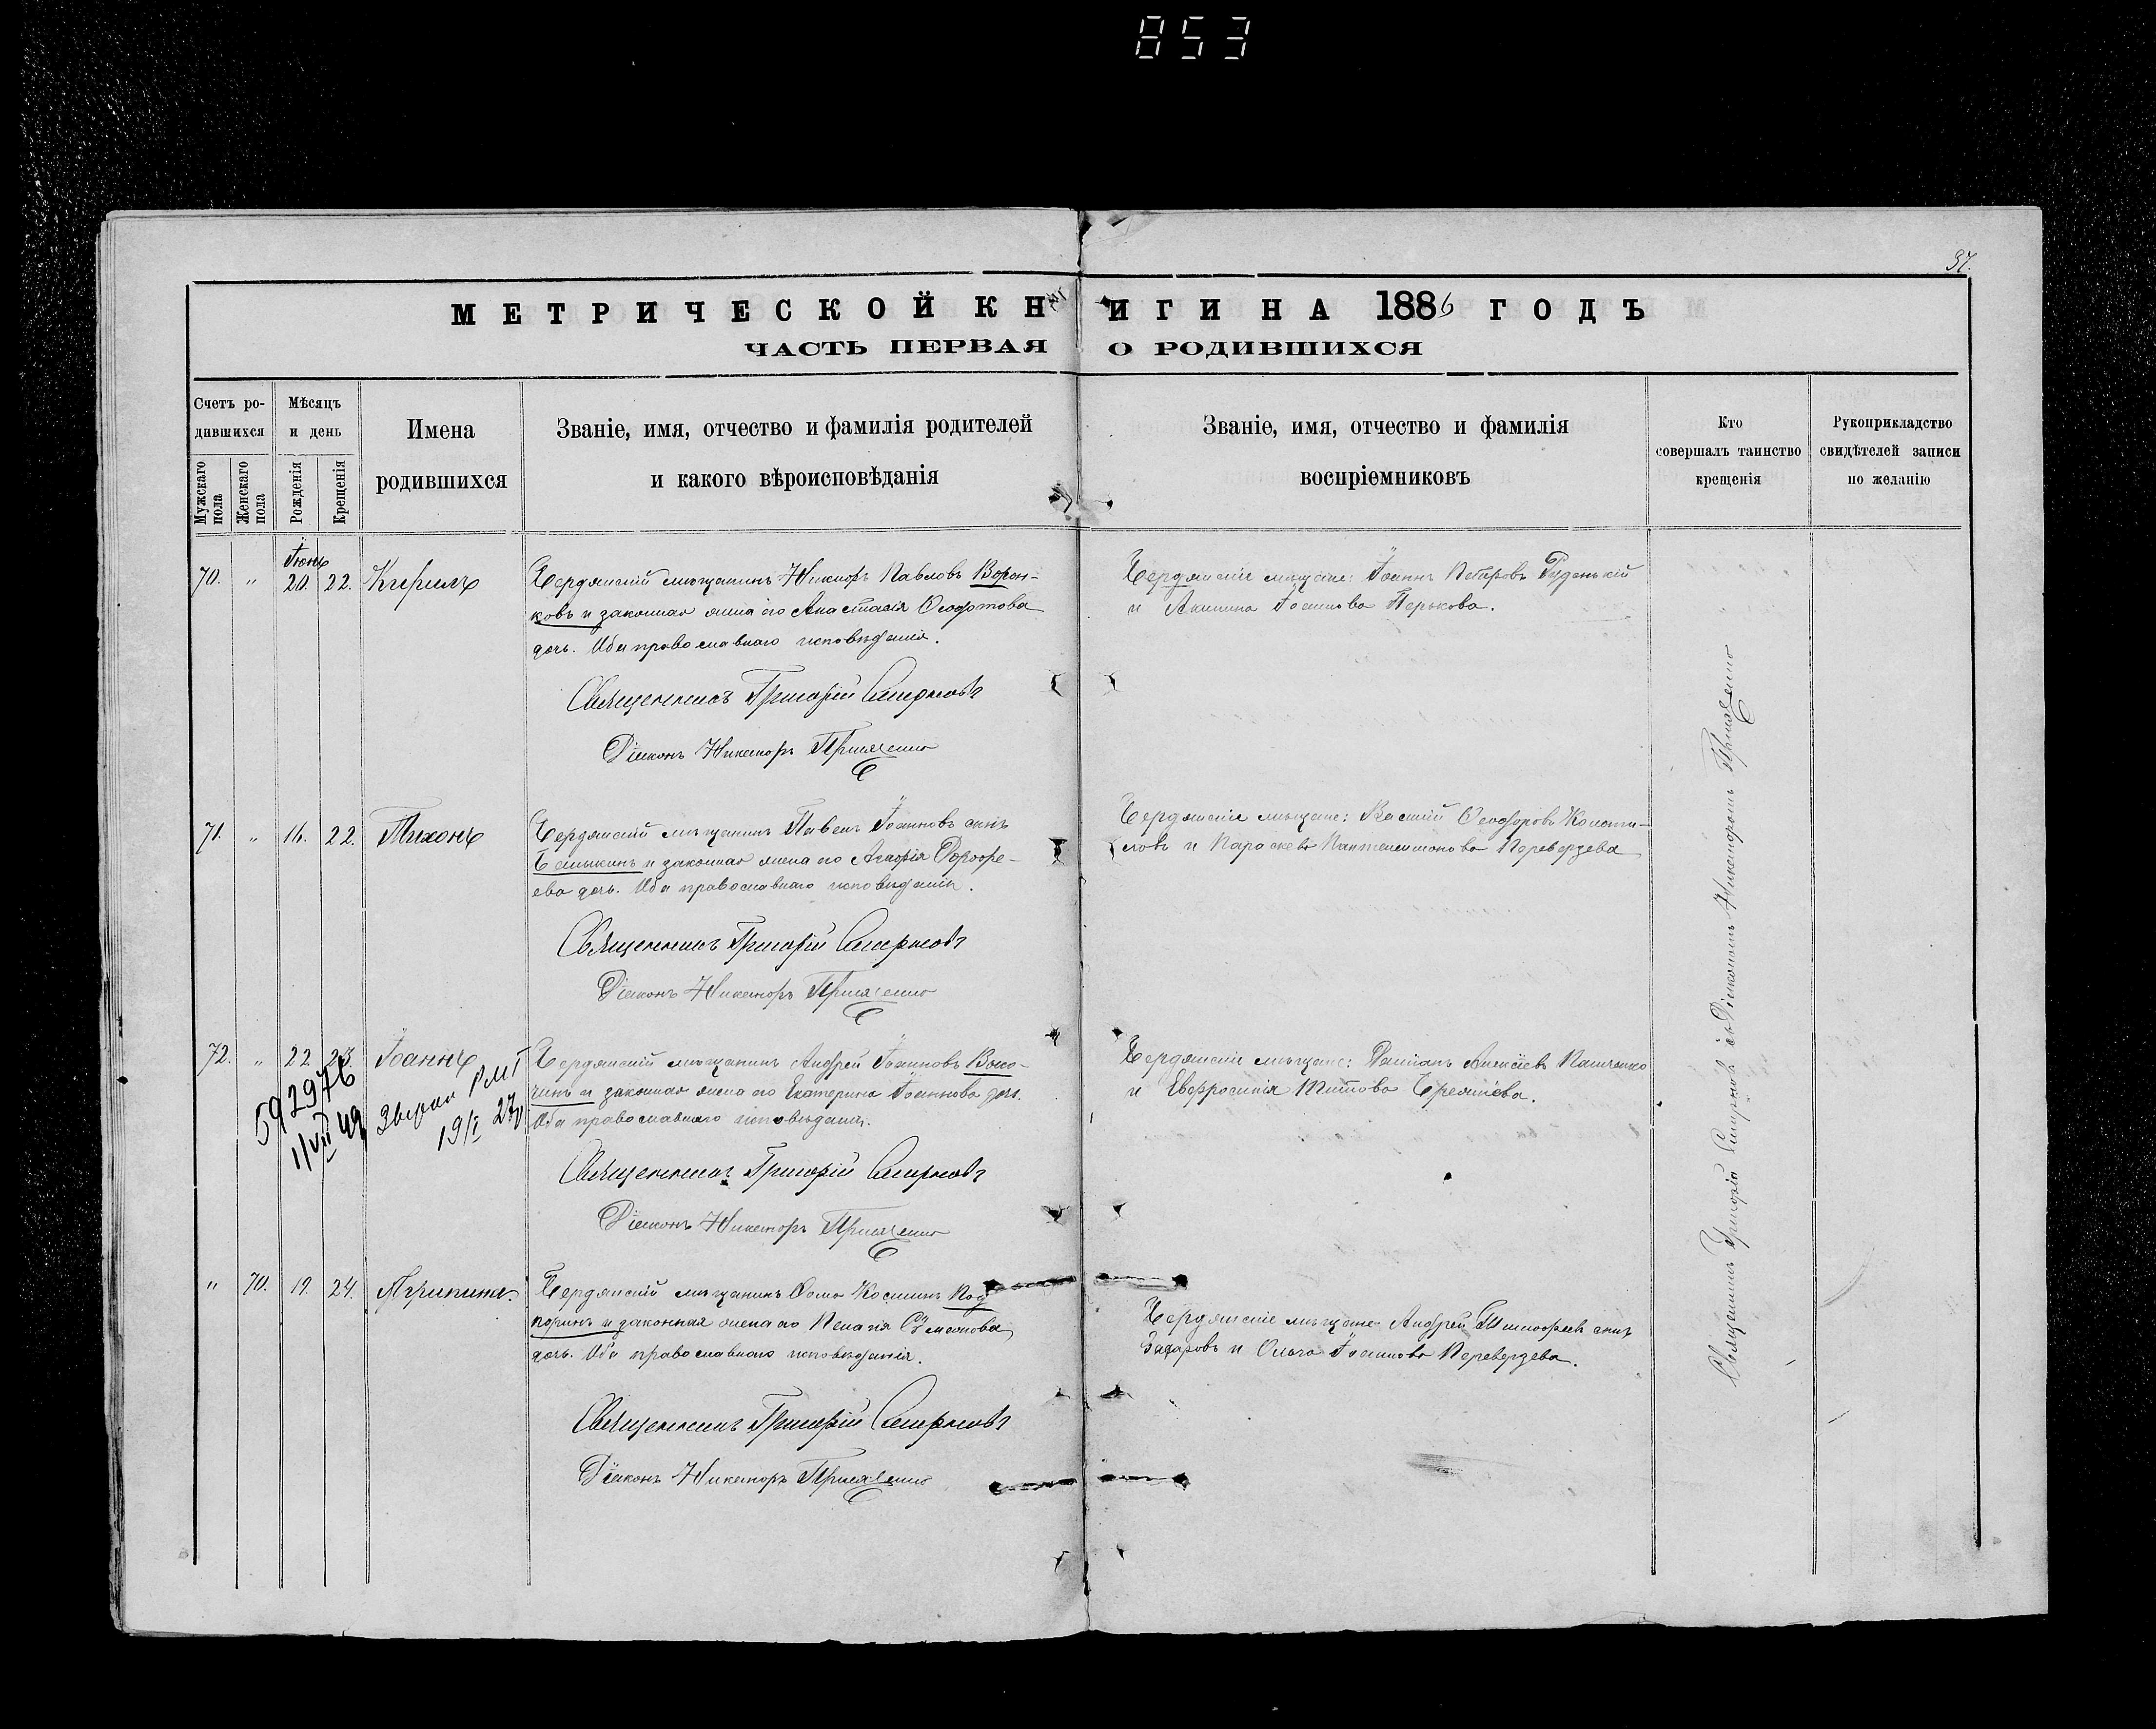 853
37.
МЕТРИЧЕСКОЙ КНИГИ НА 1886 ГОДЪ
ЧАСТЬ ПЕРВАЯ О РОДИВШИХСЯ
Счетъ ро-
дившихся
Мужскаго пола
Женскаго пола
Мѣсяцъ
и день
Рожденія
Крещенія
Имена
родившихся
Званіе, имя, отчество и фамилія родителей
и какого вѣроисповѣданія
Званіе, имя, отчество и фамилія
воспріемниковъ
Кто
совершалъ таинство
крещенія
Рукоприкладство
свидѣтелей записи
по желанію
Іюнь
70. " 20. 22. Кирилъ
Бердянскій мѣщанинъ Никифоръ Павловъ Ворон-
ковъ и законная жена его Анастасія
дочь. Оба православнаго исповѣданія.
Священникъ Григорій Смирновъ
Діаконъ Никаноръ
Бердянскіе мѣщане: Іоаннъ Петровъ Руденькій
и Акилина Іоаннова Перькова.
71. " 16. 22. Тихонъ
Бердянскій мѣщанинъ Павелъ Іоанновъ сынъ
и законная жена его Агафія Дорофе-
ева дочь. Оба православнаго исповѣданія.
Священникъ Григорій Смирновъ
Діаконъ Никаноръ
Бердянскіе мѣщане: Василій Ѳеодоровъ
и Параскева Пантелеимонова Переверзева
72. " 22 23. Іоаннъ
592976
1/VII 49
19/I 27
Бердянскій мѣщанинъ Андрей Іоанновъ
и законная жена его Екатерина Іоаннова дочь.
Оба православнаго исповѣданія.
Священникъ Григорій Смирновъ
Діаконъ Никаноръ
Бердянскіе мѣщане: Даміанъ Алексіевъ
и Евфросинія Титова Еремѣева.
" 70. 19. 24. Агрипина.
Бердянскій мѣщанинъ Ѳома Косминъ Под
поринъ и законная жена его Пелагія Сѵмеонова
дочь. Оба православнаго исповѣданія.
Священникъ Григорій Смирновъ
Діаконъ Никаноръ
Бердянскіе мѣщане: Андрей Тимофеевъ сынъ
Захаровъ и Ольга Іоаннова Переверзева.
Священникъ Григорій Смирновъ съ Діакономъ